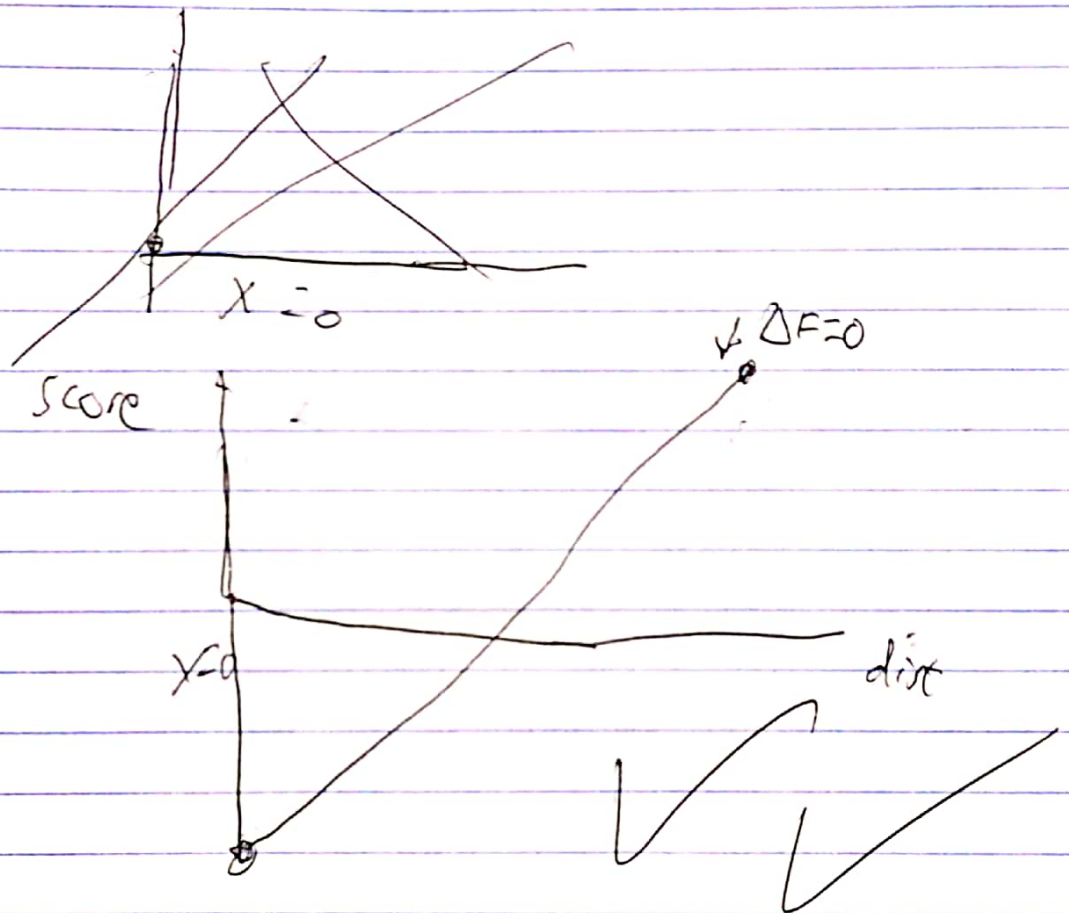 X = 0
ΔF=0
score
y=0
dist